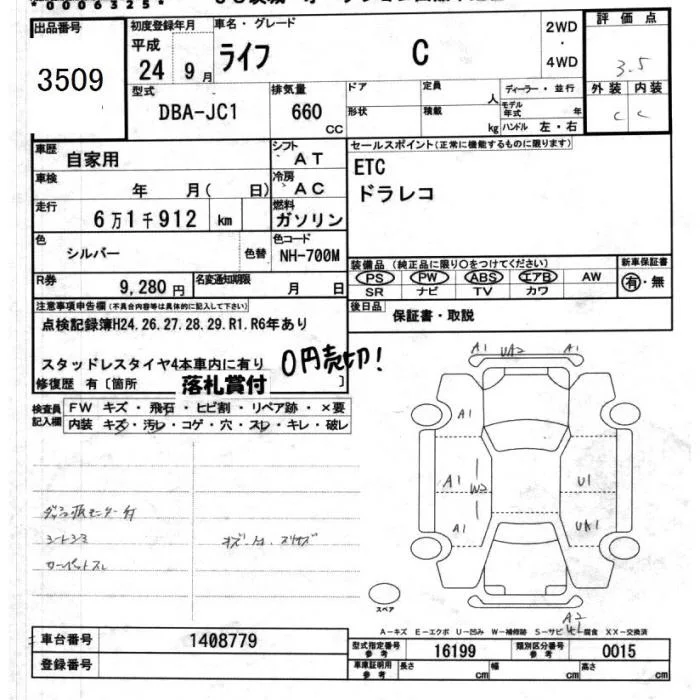 *0006325*
出品番号
3509
初度登録年月
平成
24 9月
車名・グレード
ライフ C
2WD
・
4WD
評価点
3.5
外装 内装
C C
型式
DBA-JC1
排気量
660
CC
ドア
定員
人
形状
積載
kg
ディーラー・並行
モデル年式 年
ハンドル 左・右
車歴
自家用
シフト
AT
車検
年 月( 日)
冷房
AC
走行
6万1千912 km
燃料
ガソリン
色
シルバー
色替
色コード
NH-700M
R券
9,280円
名変通知期限
月 日
セールスポイント(正常に機能するものに限ります)
ETC
ドラレコ
装備品(純正品に限り○をつけてください)
PS PW ABS エアB AW
SR ナビ TV カワ
新車保証書
有・無
後日品
保証書・取説
注意事項申告欄(不具合内容等は具体的に記入して下さい)
点検記録簿H24.26.27.28.29.R1.R6年あり
スタッドレスタイヤ4本車内に有り
0円売切!
修復歴 有〔箇所
落札賞付
〕
検査員記入欄
FW キズ・飛石・ヒビ割・リペア跡・×要
内装 キズ・汚レ・コゲ・穴・スレ・キレ・破レ
シートシミ
A1 UA2 A1
A1
A1 W2 U1
A1 UA1
スペア
A2
A-キズ E-エクボ U-凹み W-補修跡 S-サビ 腐食 XX-交換済
車台番号
1408779
登録番号
型式指定番号
参考
16199
類別区分番号
参考
0015
車庫証明用
参考
長さ cm
幅 cm
高さ cm